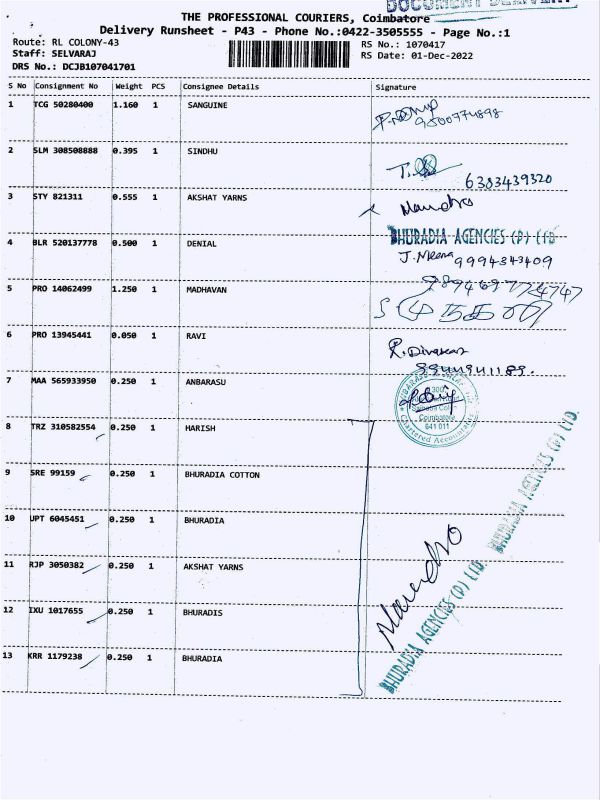 DOCUMENT DELIVERY
THE PROFESSIONAL COURIERS, Coimbatore
Delivery Runsheet - P43 - Phone No.:0422-3505555 - Page No.:1
Route: RL COLONY-43 RS No.: 1070417
Staff: SELVARAJ RS Date: 01-Dec-2022
DRS No.: DCJB107041701
S No Consignment No Weight PCS Consignee Details Signature
1 TCG 50280400 1.160 1 SANGUINE
9500774898
2 SLM 308508888 0.395 1 SINDHU
6383439320
3 STY 821311 0.555 1 AKSHAT YARNS
BHURADIA AGENCIES (P) LTD
4 BLR 520137778 0.500 1 DENIAL
J. Meena 9994343409
5 PRO 14062499 1.250 1 MADHAVAN
6 PRO 13945441 0.050 1 RAVI
R. Divakar
9944941189.
7 MAA 565933950 0.250 1 ANBARASU
Coimbatore
641 011
Chartered Accountants
8 TRZ 310582554 0.250 1 HARISH
9 SRE 99159 0.250 1 BHURADIA COTTON
10 UPT 6045451 0.250 1 BHURADIA
11 RJP 3050382 0.250 1 AKSHAT YARNS
12 IXU 1017655 0.250 1 BHURADIS
13 KRR 1179238 0.250 1 BHURADIA
BHURADIA AGENCIES (P) LTD
BHURADIA AGENCIES (P) LTD.